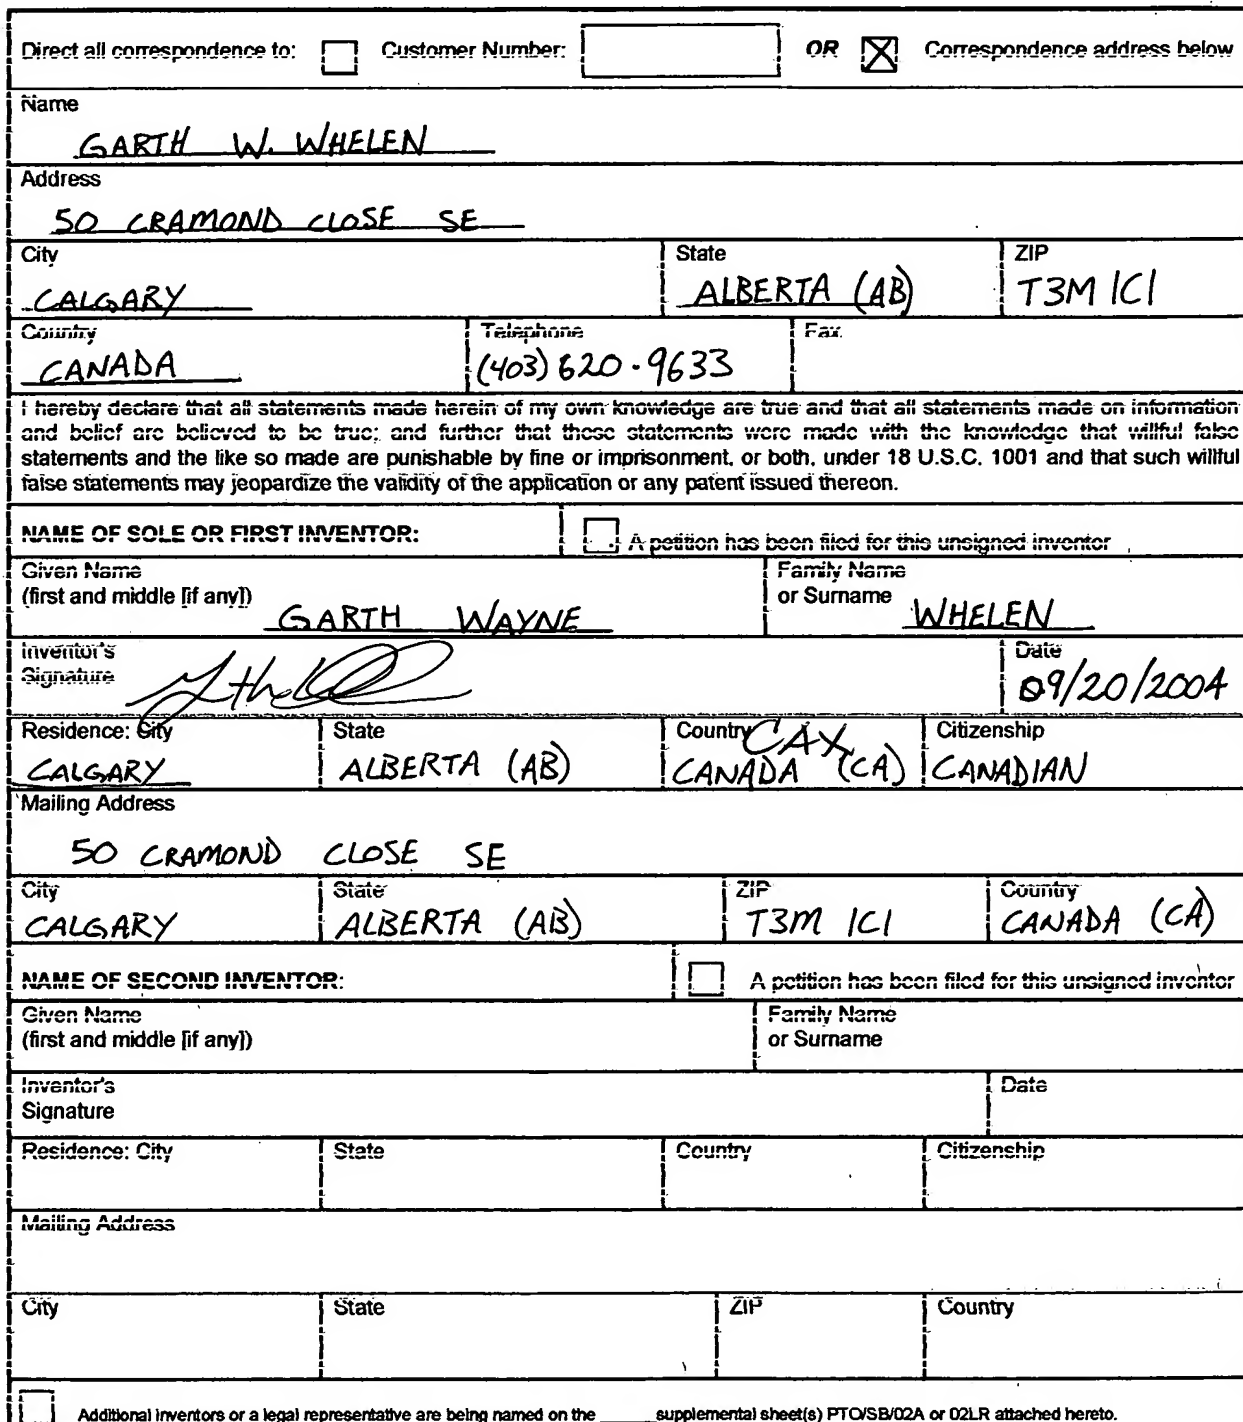 Direct all correspondence to: Customer Number: OR Correspondence address below
Name
GARTH W. WHELEN
Address
50 CRAMOND CLOSE SE
City State ZIP
CALGARY ALBERTA (AB) T3M 1C1
Country Telephone Fax
CANADA (403) 620-9633
I hereby declare that all statements made herein of my own knowledge are true and that all statements made on information
and belief are believed to be true; and further that these statements were made with the knowledge that willful false
statements and the like so made are punishable by fine or imprisonment, or both, under 18 U.S.C. 1001 and that such willful
false statements may jeopardize the validity of the application or any patent issued thereon.
NAME OF SOLE OR FIRST INVENTOR: A petition has been filed for this unsigned inventor
Given Name Family Name
(first and middle [if any]) GARTH WAYNE or Surname WHELEN
Inventor's Date
Signature 09/20/2004
Residence: City State Country CAX Citizenship
CALGARY ALBERTA (AB) CANADA (CA) CANADIAN
Mailing Address
50 CRAMOND CLOSE SE
City State ZIP Country
CALGARY ALBERTA (AB) T3M 1C1 CANADA (CA)
NAME OF SECOND INVENTOR: A petition has been filed for this unsigned inventor
Given Name Family Name
(first and middle [if any]) or Surname
Inventor's Date
Signature
Residence: City State Country Citizenship
Mailing Address
City State ZIP Country
Additional inventors or a legal representative are being named on the _____ supplemental sheet(s) PTO/SB/02A or 02LR attached hereto.